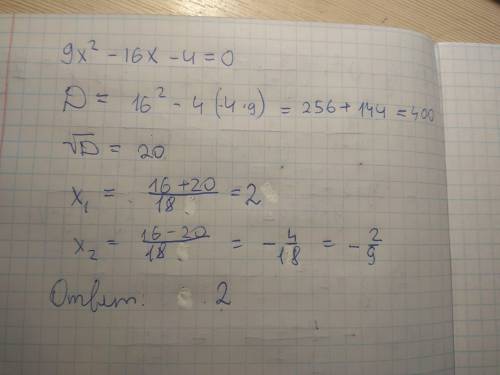 9x² - 16x - 4 = 0
D = 16² - 4 (-4·9) = 256 + 144 = 400
√D = 20
x₁ = (16+20)/18 = 2
x₂ = (16-20)/18 = -4/18 = -2/9
Ответ: 2